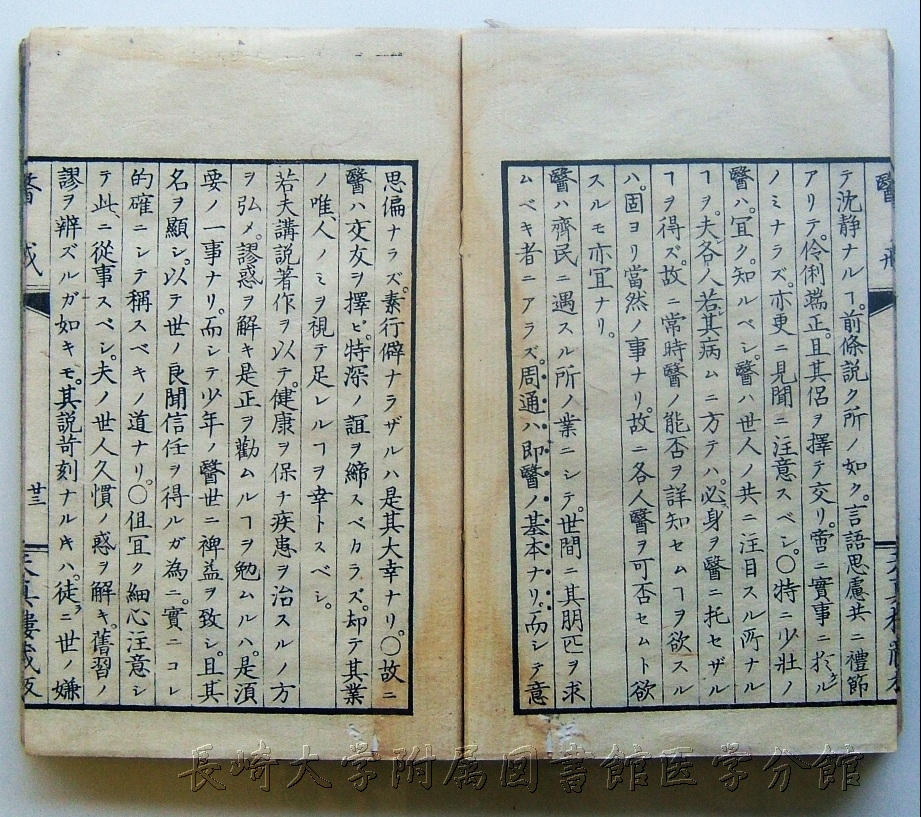 醫戒
テ沈静ナルヿ。前條説ク所ノ如ク。言語思慮共ニ禮節
アリテ。伶俐端正。且其侶ヲ擇テ交リ。啻ニ實事ニ於ル
ノミナラズ。亦更ニ見聞ニ注意スベシ。〇特ニ少壯ノ
醫ハ。冝ク。知ルベシ。醫ハ世人ノ共ニ注目スル所ナル
ヿヲ。夫各人若其病ムニ方テハ。必身ヲ醫ニ托セザル
ヿヲ得ズ。故ニ常時醫ノ能否ヲ詳知セムヿヲ欲スル
ハ。固ヨリ當然ノ事ナリ。故ニ各人醫ヲ可否セムト欲
スルモ亦冝ナリ。
醫ハ齊民ニ遇スル所ノ業ニシテ。世間ニ其朋匹ヲ求
ムベキ者ニアラズ。周通ハ即醫ノ基本ナリ。而シテ意
思偏ナラズ。素行僻ナラザルハ是其大幸ナリ。〇故ニ
醫ハ交友ヲ擇ビ。特深ノ誼ヲ締スベカラズ。却テ其業
ノ唯人ノミヲ視テ足レルヿヲ幸トスベシ。
若夫講説著作ヲ以テ。健康ヲ保チ疾患ヲ治スルノ方
ヲ弘メ。謬惑ヲ解キ是正ヲ勸ムルヿヲ勉ムルハ。是須
要ノ一事ナリ。而シテ少年ノ醫世ニ裨益ヲ致シ。且其
名ヲ顯シ。以テ世ノ良聞信任ヲ得ルガ為ニ。實ニコレ
的確ニシテ稱スベキノ道ナリ。〇伹冝ク細心注意シ
テ此ニ從事スベシ。夫ノ世人久慣ノ惑ヲ解キ。舊習ノ
謬ヲ辨ズルガ如キモ。其説苛刻ナルキハ。徒ニ世ノ嫌
醫戒
廿三
天真樓蔵版
長崎大学附属図書館医学分館